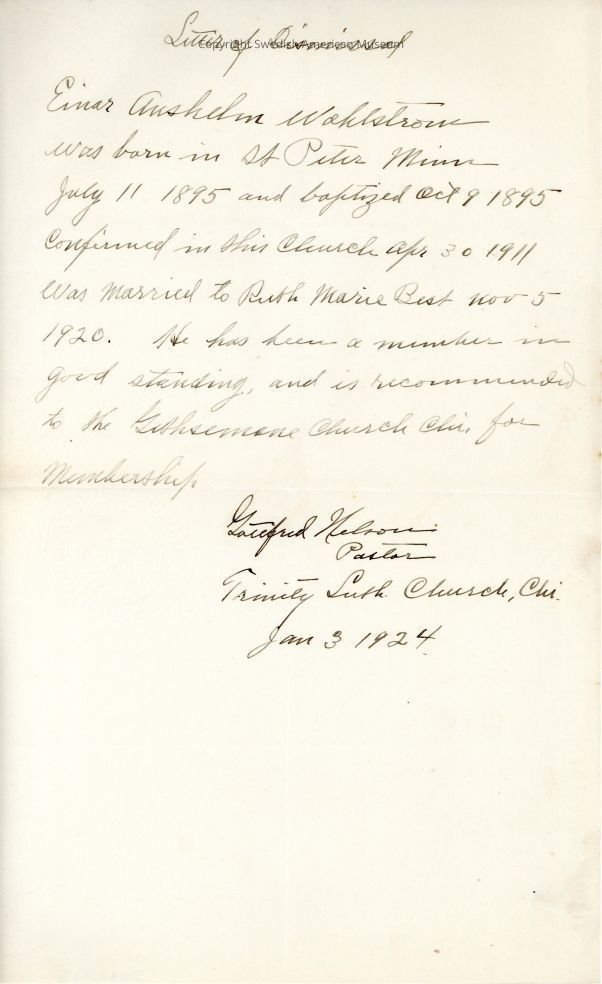 Letter of Dismissal
Copyright Swedish American Museum
Einar Anshelm Wahlstrom
was born in St Peter Minn
July 11 1895 and baptized Oct 9 1895
Confirmed in this Church Apr 30 1911
Was Married to Ruth Marie Best nov 5
1920. He has been a member in
good standing, and is recommended
to the Gethsemane Church Chi. for
Membership
Gottfred Nelson
Pastor
Trinity Luth. Church, Chi.
Jan 3 1924.